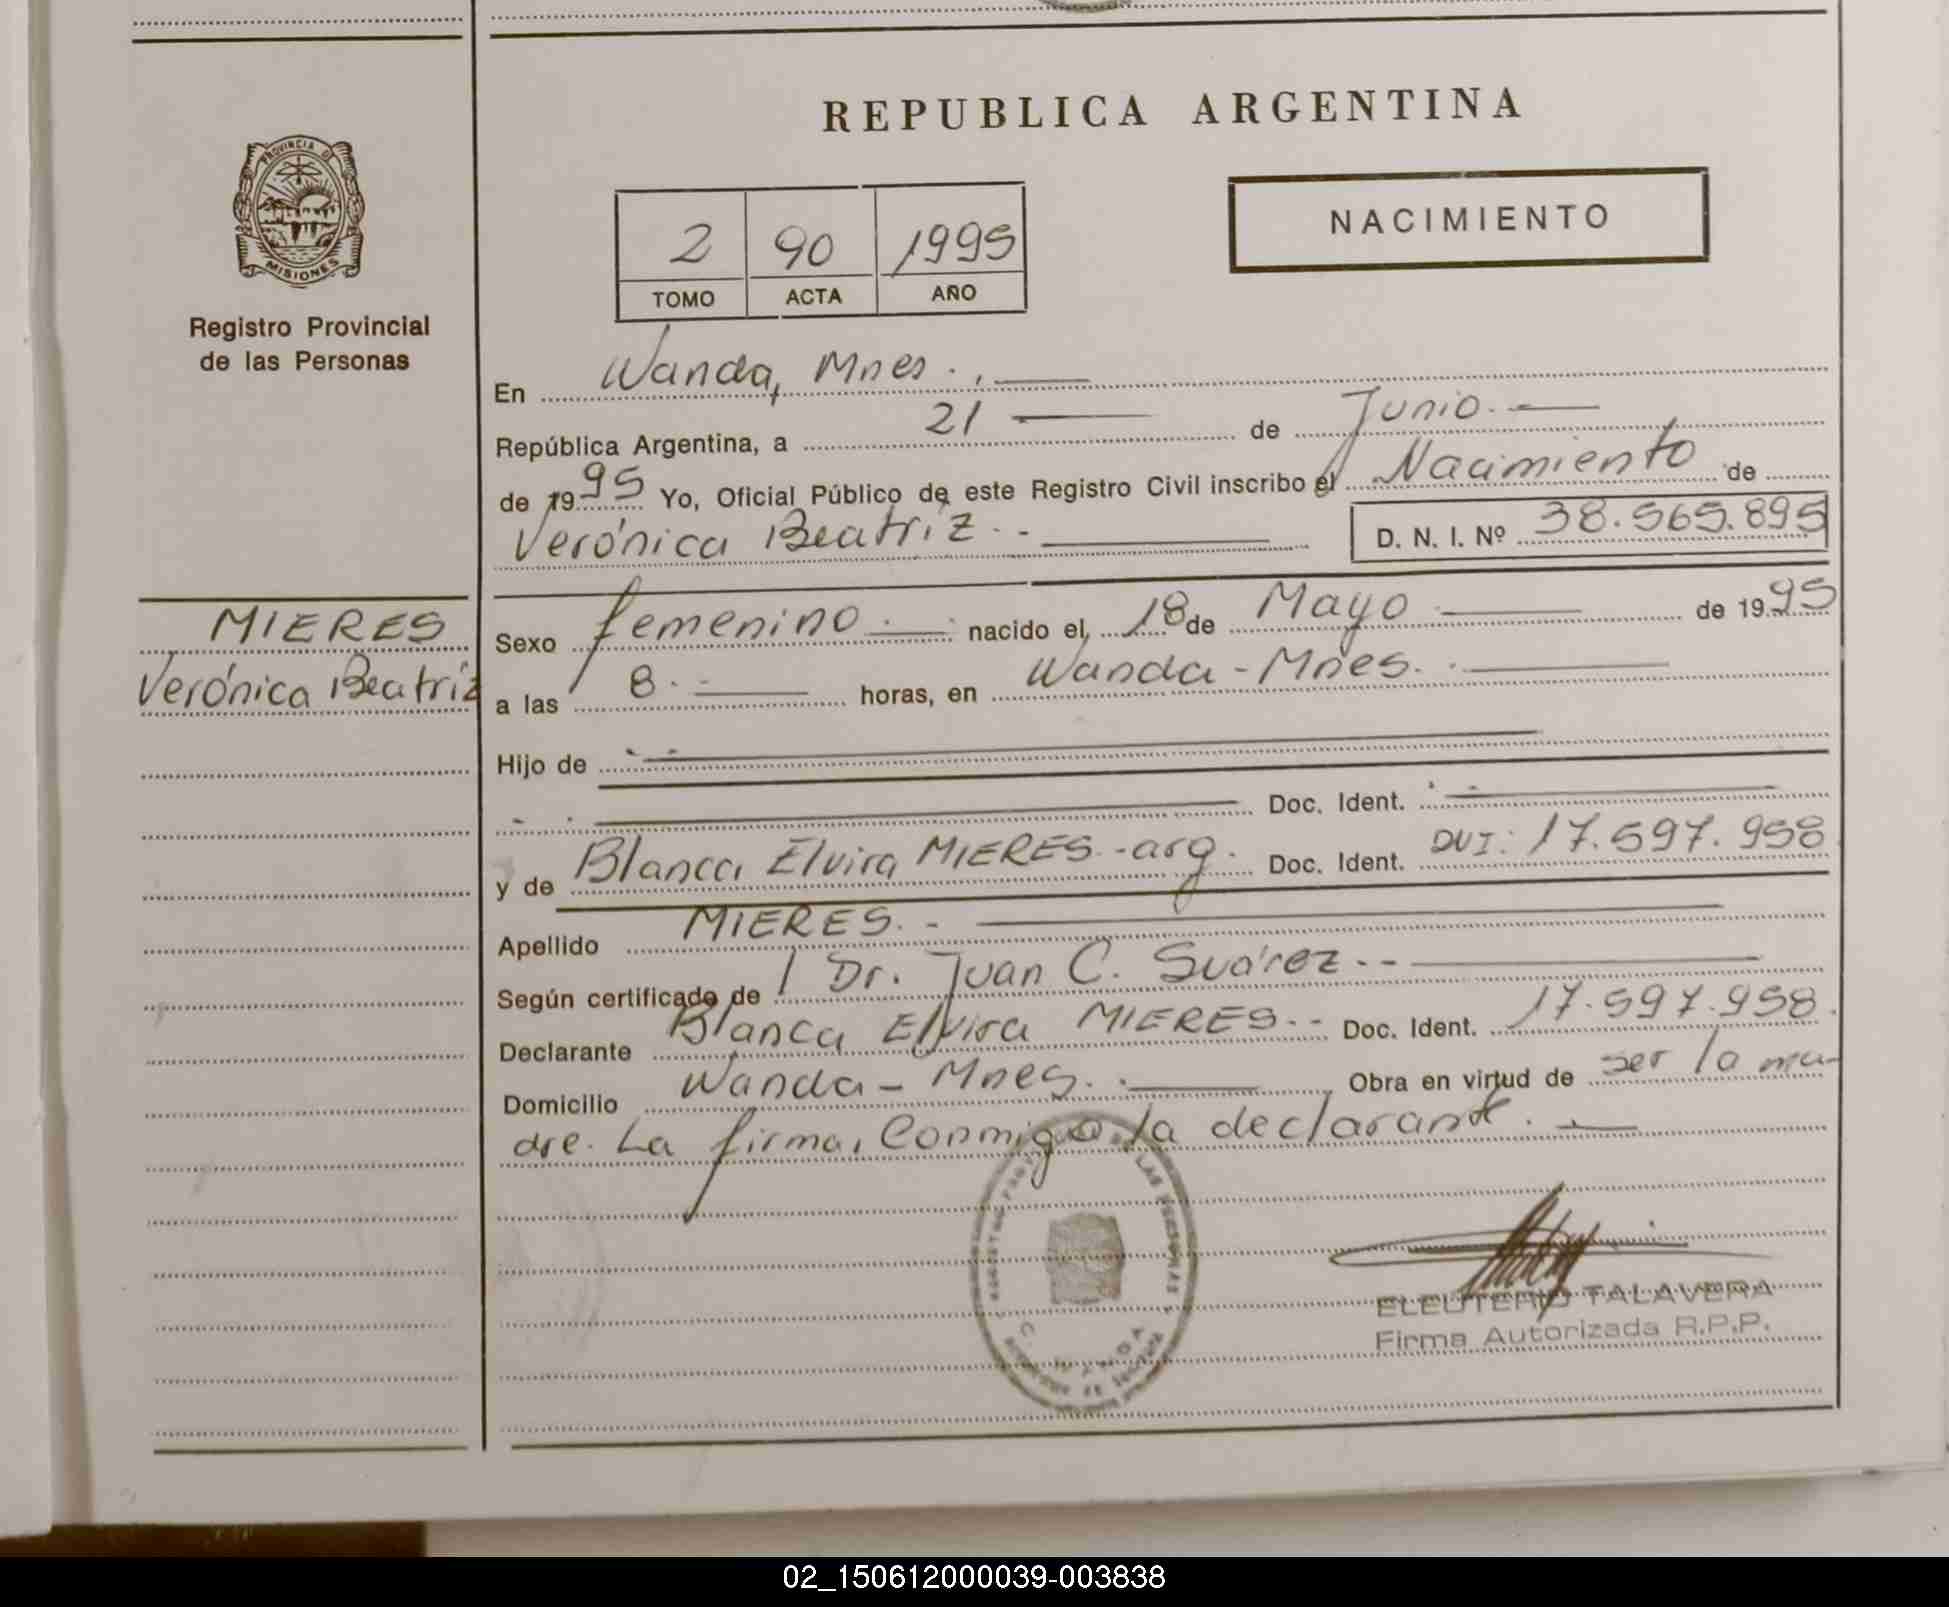 REPUBLICA ARGENTINA
PROVINCIA DE
MISIONES
Registro Provincial
de las Personas
2 90 1995
TOMO ACTA AÑO
NACIMIENTO
En Wanda, Mnes.,
República Argentina, a 21 de Junio.
de 1995 Yo, Oficial Público de este Registro Civil inscribo el Nacimiento de
Verónica Beatriz.- D. N. I. Nº 38.565.895
MIERES
Verónica Beatriz
Sexo femenino. nacido el 18 de Mayo de 1995
a las 8.- horas, en Wanda - Mnes.
Hijo de
Doc. Ident.
y de Blanca Elvira MIERES.-arg. Doc. Ident. DUI: 17.597.958
Apellido MIERES.-
Según certificado de Dr. Juan C. Suárez.--
Declarante Blanca Elvira MIERES.-- Doc. Ident. 17.597.958.
Domicilio Wanda - Mnes.. Obra en virtud de ser la ma-
dre. La firma, Conmigo la declarante.
ELEUTERIO TALAVERA
Firma Autorizada R.P.P.
02_150612000039-003838